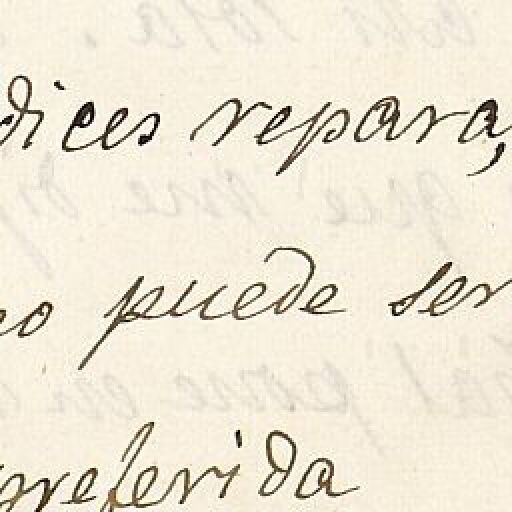 dices repara,
no puede ser
preferida